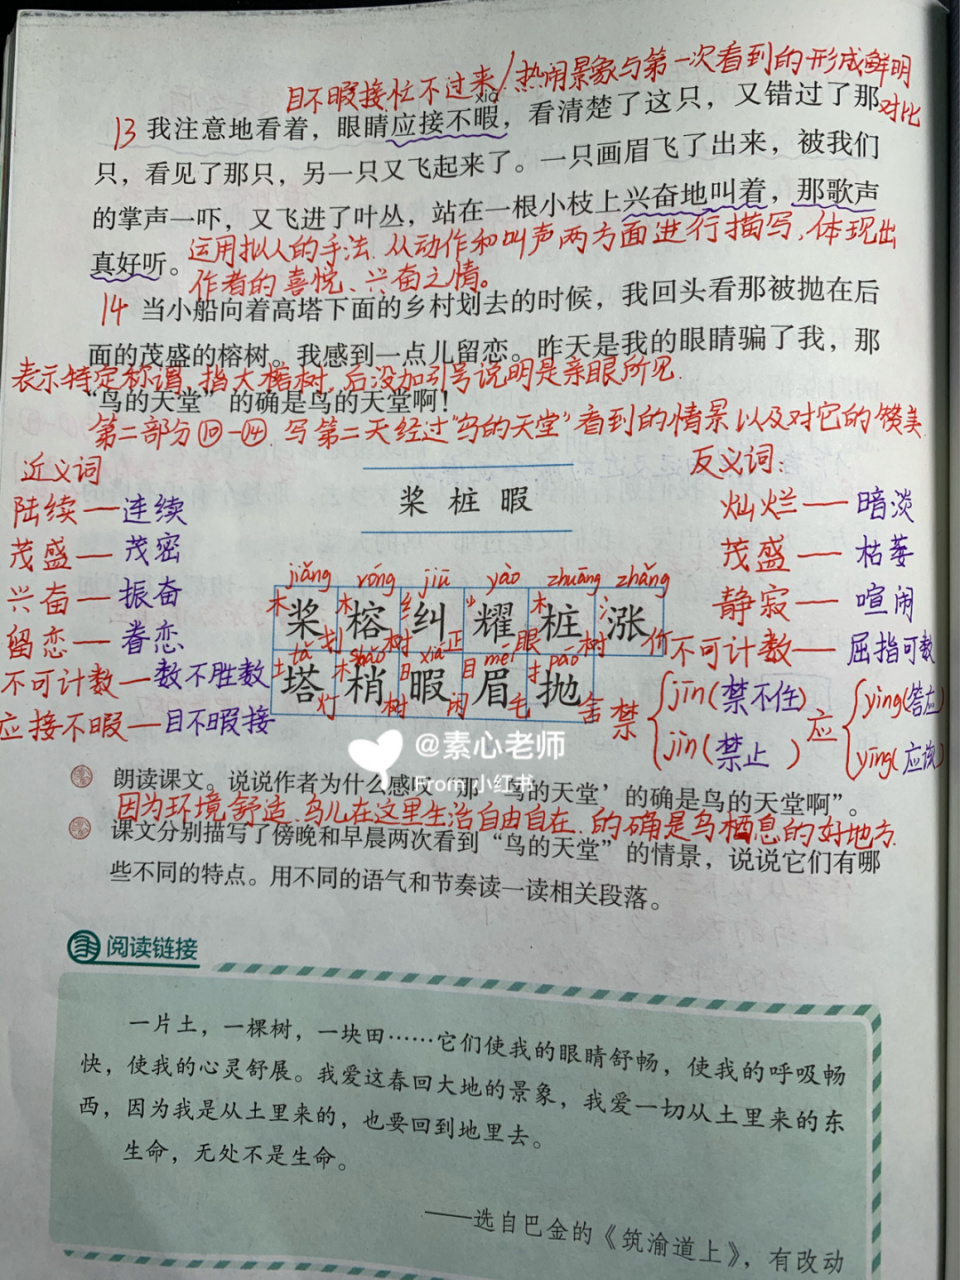 目不暇接忙不过来/热闹景象与第一次看到的形成鲜明
对比
xiá
13 我注意地看着，眼睛应接不暇，看清楚了这只，又错过了那
只，看见了那只，另一只又飞起来了。一只画眉飞了出来，被我们
的掌声一吓，又飞进了叶丛，站在一根小枝上兴奋地叫着，那歌声
真好听。
运用拟人的手法，从动作和叫声两方面进行描写，体现出
作者的喜悦、兴奋之情。
14 当小船向着高塔下面的乡村划去的时候，我回头看那被抛在后
面的茂盛的榕树。我感到一点儿留恋。昨天是我的眼睛骗了我，那
表示特定称谓，指大榕树，后没加引号说明是亲眼所见.
“鸟的天堂”的确是鸟的天堂啊！
第二部分⑩—⑭ 写第二天经过“鸟的天堂”看到的情景以及对它的赞美.
近义词
陆续—连续
茂盛—茂密
兴奋—振奋
留恋—眷恋
不可计数—数不胜数
应接不暇—目不暇接
桨 桩 暇
反义词：
灿烂—暗淡
茂盛—枯萎
静寂—喧闹
不可计数—屈指可数
jiǎng róng jiū yào zhuāng zhǎng
木 木 纟 木 氵
桨 榕 纠 耀 桩 涨
划 树 正 眼 树 价
tǎ shāo xiá méi pāo
土 木 日 目 扌
塔 梢 暇 眉 抛
灯 树 闲 毛 舍
禁 jīn(禁不住)
jìn(禁止)
应 yìng(答应)
yīng(应该)
@素心老师
From 小红书
朗读课文。说说作者为什么感叹“那‘鸟的天堂’的确是鸟的天堂啊”。
因为环境舒适，鸟儿在这里生活自由自在，的确是鸟栖息的好地方.
课文分别描写了傍晚和早晨两次看到“鸟的天堂”的情景，说说它们有哪
些不同的特点。用不同的语气和节奏读一读相关段落。
阅读链接
一片土，一棵树，一块田……它们使我的眼睛舒畅，使我的呼吸畅
快，使我的心灵舒展。我爱这春回大地的景象，我爱一切从土里来的东
西，因为我是从土里来的，也要回到地里去。
生命，无处不是生命。
——选自巴金的《筑渝道上》，有改动